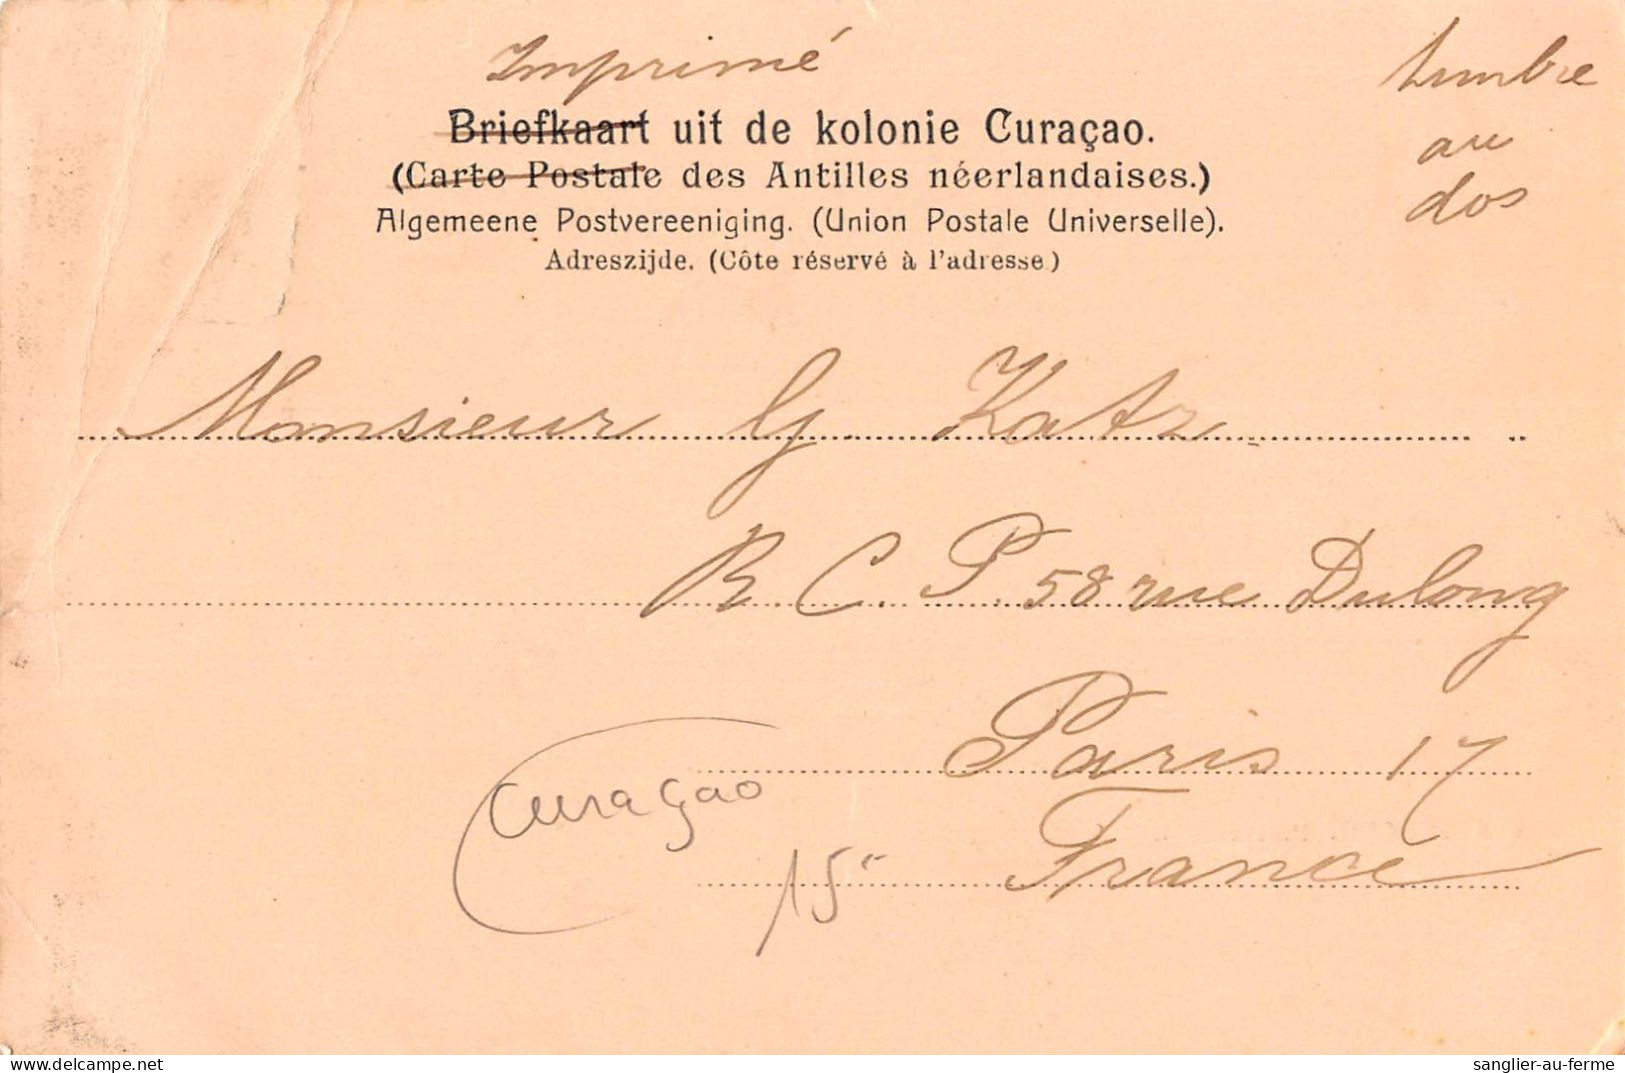 Imprimé
timbre
au
dos
Briefkaart uit de kolonie Curaçao.
(Carte Postale des Antilles néerlandaises.)
Algemeene Postvereeniging. (Union Postale Universelle).
Adreszijde. (Côte réservé à l'adresse)
Monsieur G. Katz
R. C. P. 58 rue Dulong
Paris 17
France
Curaçao
15
delcampe.net
sanglier-au-ferme